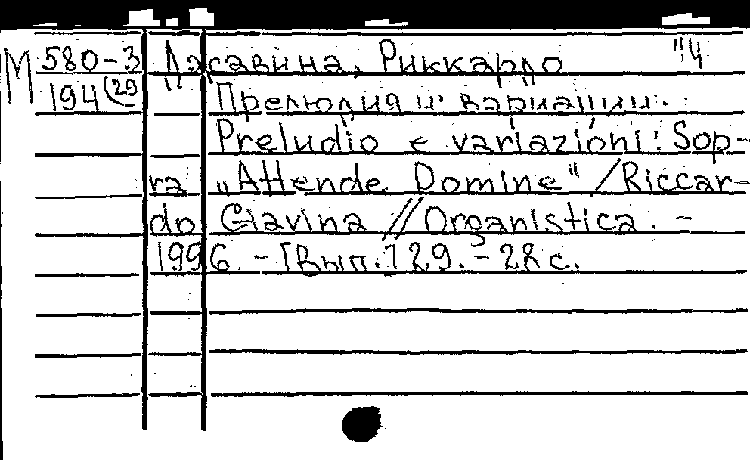 М 580-3 Джавина, Риккардо "4
194 (29 Прелюдия и вариации.
Preludio e variazioni: Sop-
ra „Attende Domine" / Riccar-
do Giavina // Organistica. -
1996. - [Вып.] 29. - 28 с.